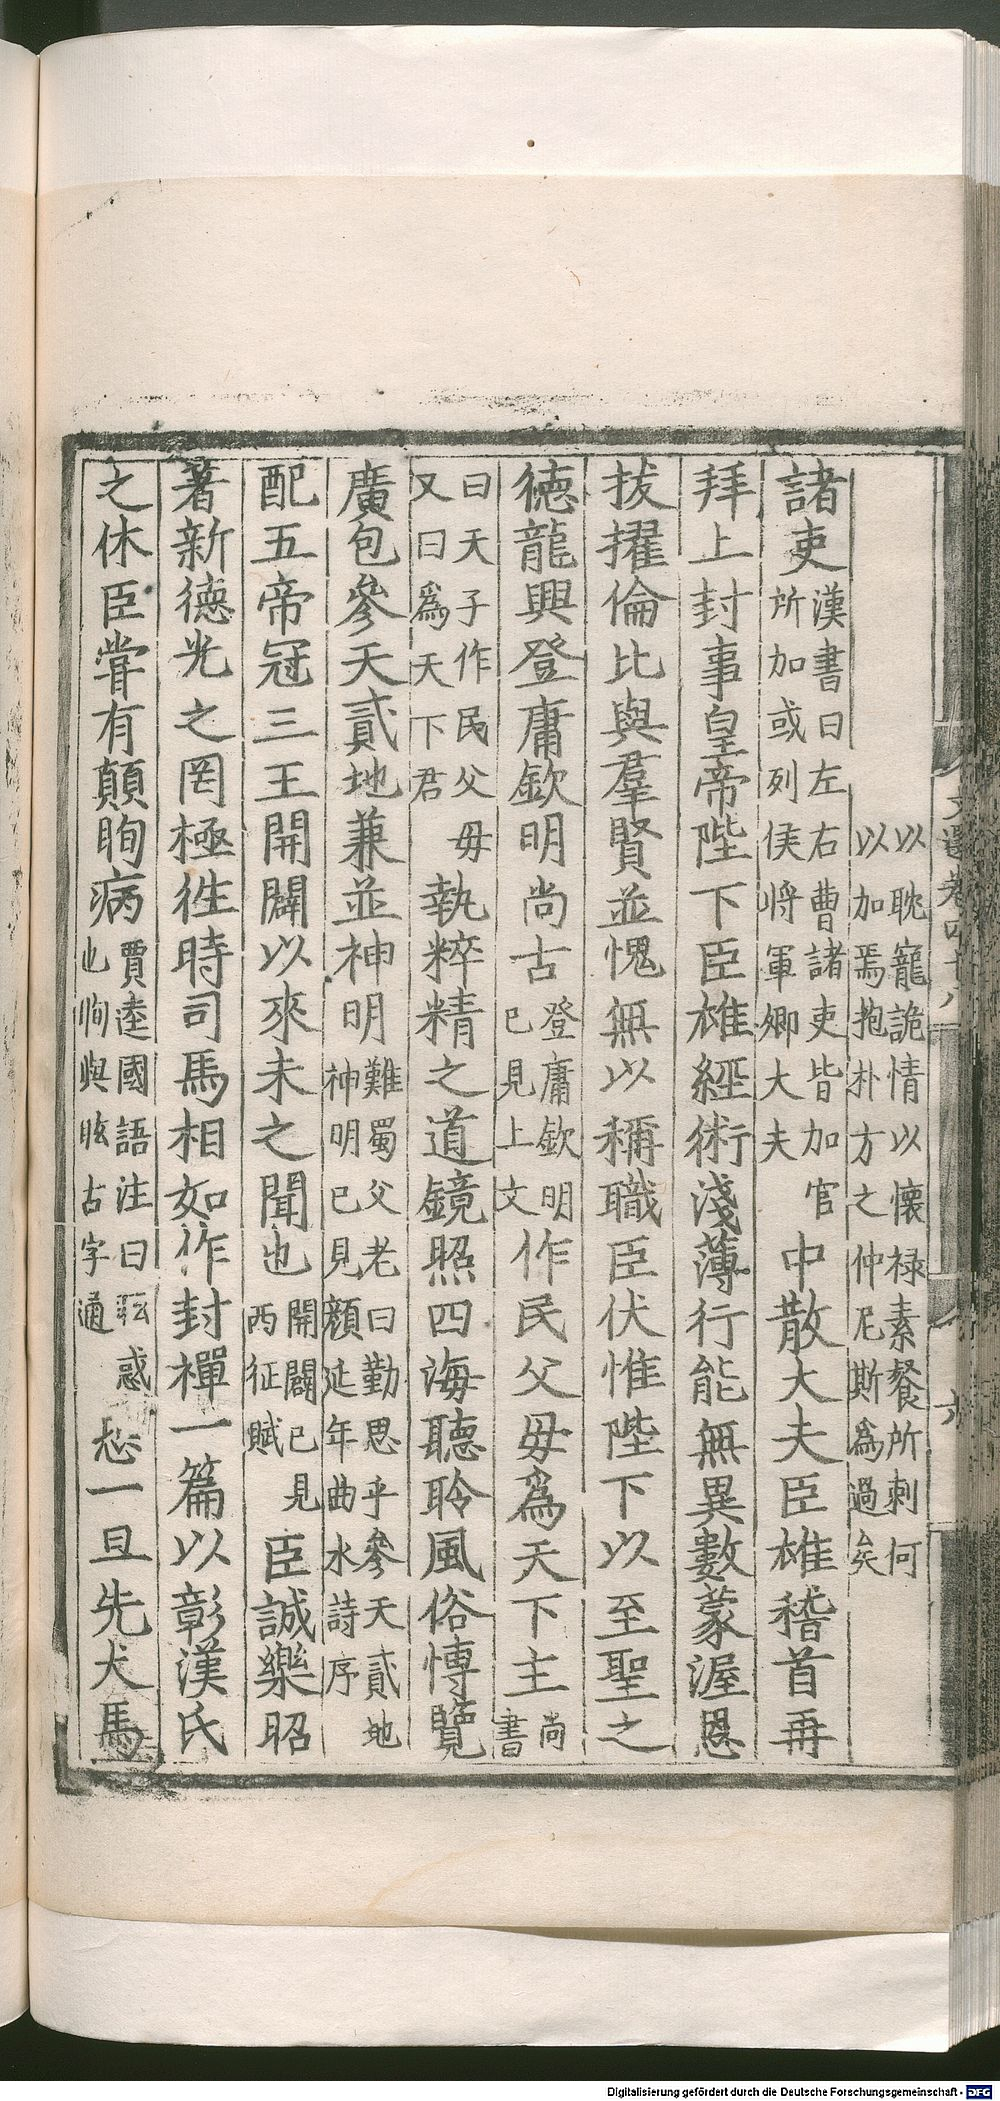 以耽寵詭情以懷祿素餐所刺何
以加焉抱朴方之仲尼斯爲過矣
諸吏漢書曰左右曹諸吏皆加官所加或列侯將軍卿大夫中散大夫臣雄稽首再
拜上封事皇帝陛下臣雄經術淺薄行能無異數蒙渥恩
拔擢倫比與羣賢並愧無以稱職臣伏惟陛下以至聖之
德龍興登庸欽明尚古登庸欽明已見上文作民父母爲天下主尚書
曰天子作民父母又曰爲天下君執粹精之道鏡照四海聽聆風俗博覽
廣包參天貳地兼並神明難蜀父老曰勤思乎參天貳地神明已見顏延年曲水詩序
配五帝冠三王開闢以來未之聞也開闢已見西征賦臣誠樂昭
著新德光之罔極往時司馬相如作封禪一篇以彰漢氏
之休臣嘗有顛眴病賈逵國語注曰眩惑也眴與眩古字通恐一旦先犬馬
文選卷四十八
六
Digitalisierung gefördert durch die Deutsche Forschungsgemeinschaft - DFG